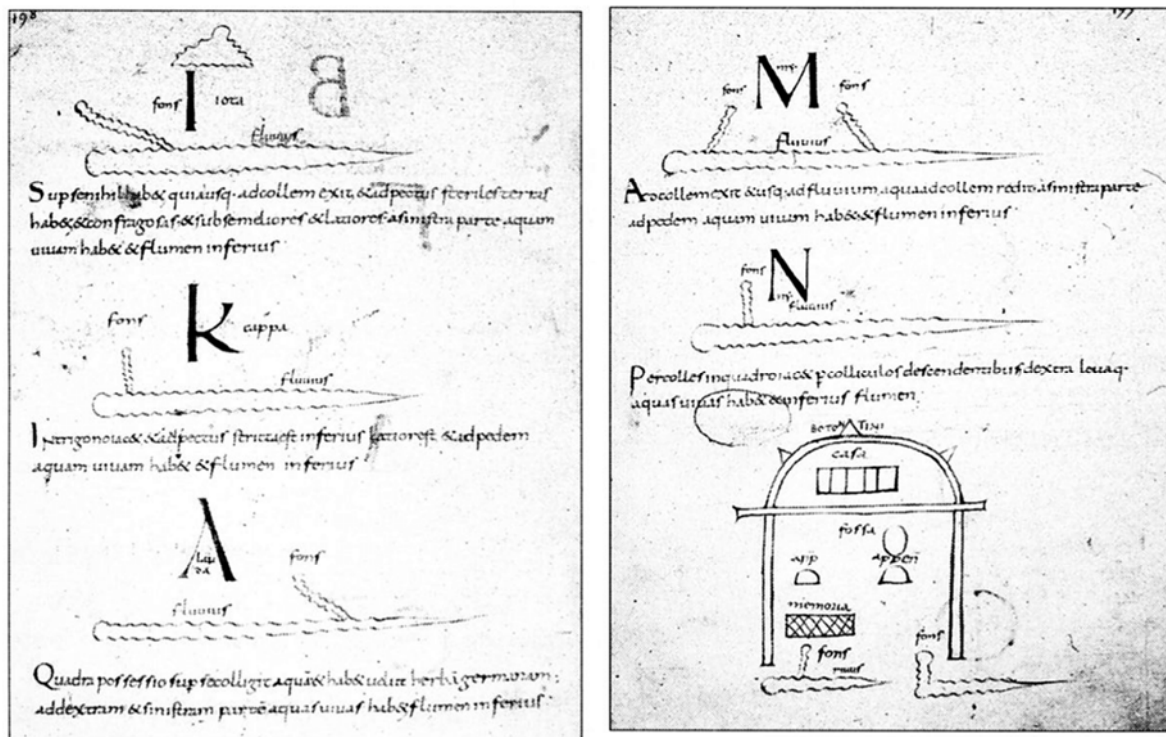 198
I
fons iota
a
fluuius
Sup se nihil hab& quia usq· ad collem exit, & ad pectus steriles terras
hab& & confragosas, & subse meliores & latiores· a sinistra parte aquam
uiuam hab& & flumen inferius·
fons
K cappa
fluuius
In trigono iac& & ad pectus stricta est inferius latior est & ad pedem
aquam uiuam hab& & flumen inferius·
Λ
fons
fluuius
Quadra possessio sup se colligit aquā & hab&
ad dextram & sinistram partē aquas uiuas hab& flumen inferius·
fons M fons
my
fluuius
collem exit & usq· ad fluuium, aqua ad collem redit· a sinistra parte
ad pedem aquam uiuam hab& & flumen inferius·
fons N
ny
fluuius
Per colles in quadro iac& & p colliculos descendentibus dextra leuaq·
aquas uiuas hab& & inferius flumen·
BOTONTINI
casa
fossa
app appen
memoria
fons fons
riuus